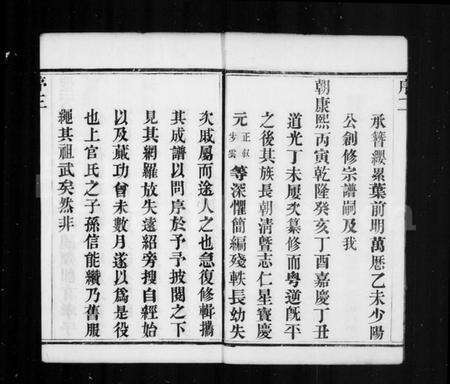 序二
承簪纓累葉前明萬厯乙未少陽
公創修宗譜嗣及我
朝康熙丙寅乾隆癸亥丁酉嘉慶丁丑
道光丁未屢次纂修而粵逆旣平
之後其族長朝清曁志仁星寶慶
元正叔步雲等深懼簡編殘軼長幼失
次戚屬而途人之也急復修輯攜
其成譜以問序於予予披閱之下
見其網羅放失遠紹旁搜自經始
以及蕆功曾未數月遂以為是役
也上官氏之子孫信能纘乃舊服
繩其祖武矣然非
序三